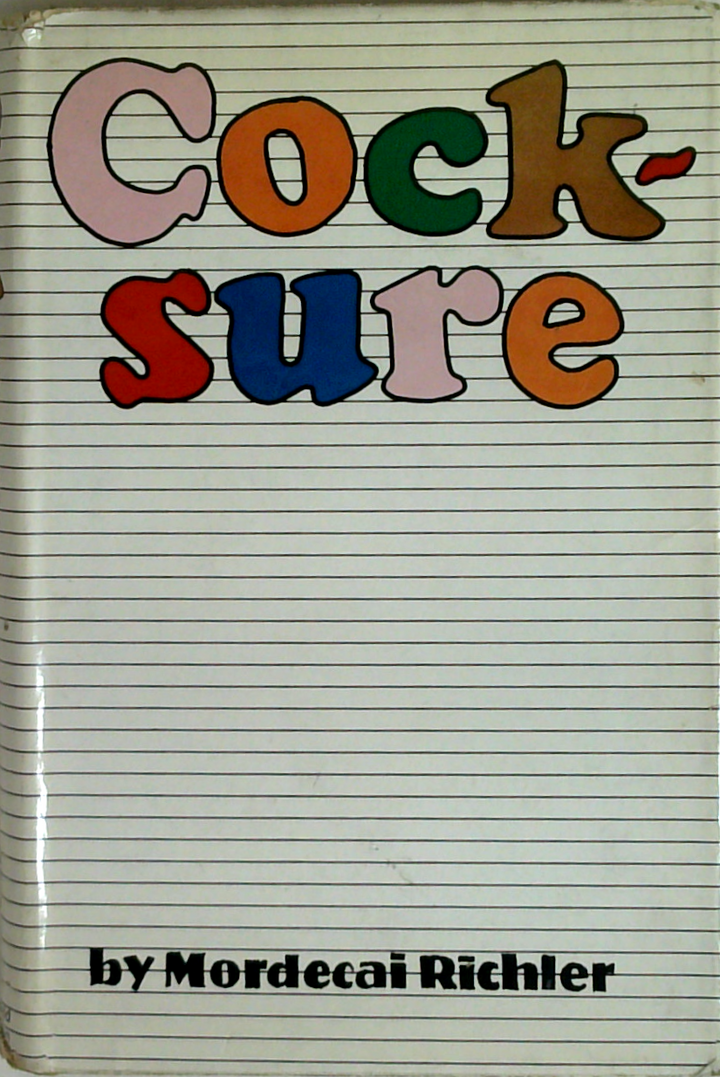 Cock-
sure
by Mordecai Richler